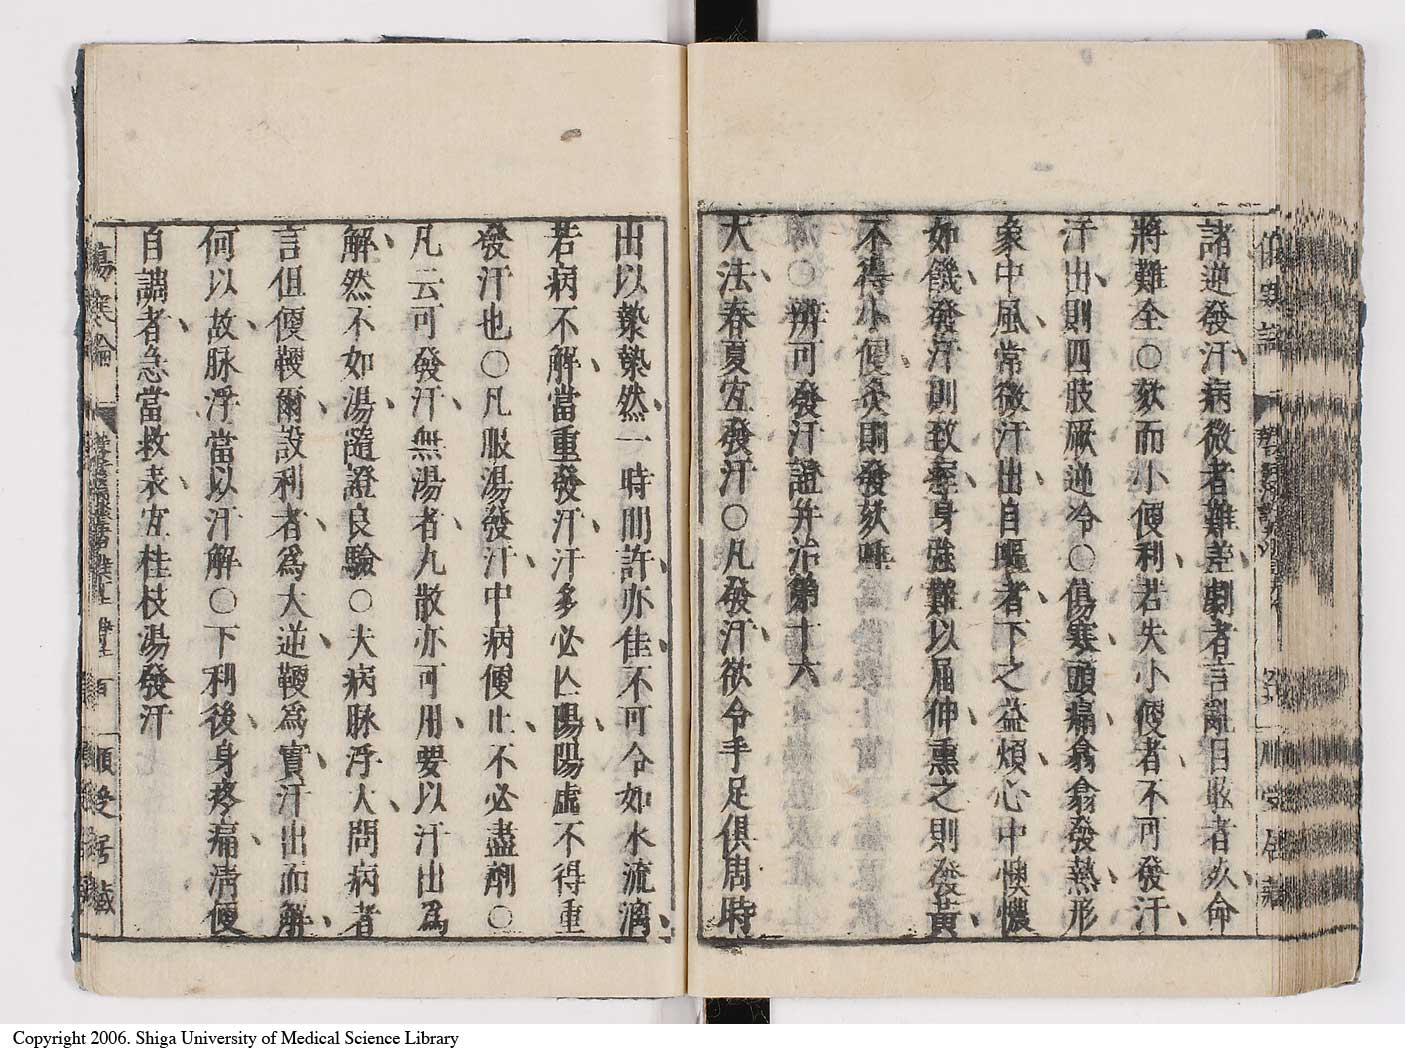 諸逆發汗病微者難差劇者言亂目眩者死命
將難全○欬而小便利若失小便者不可發汗
汗出則四肢厥逆冷○傷寒頭痛翕翕發熱形
象中風常微汗出自嘔者下之益煩心中懊憹
如饑發汗則致痓身強難以屈伸熏之則發黃
不得小便灸則發欬唾
○辨可發汗證幷治第十六
大法春夏宜發汗○凡發汗欲令手足俱周時
出以漐漐然一時間許亦佳不可令如水流漓
若病不解當重發汗汗多必亡陽陽虛不得重
發汗也○凡服湯發汗中病便止不必盡劑○
凡云可發汗無湯者丸散亦可用要以汗出爲
解然不如湯隨證良驗○大病脉浮大問病者
言但便鞕爾設利者爲大逆鞕爲實汗出而解
何以故脉浮當以汗解○下利後身疼痛淸便
自調者急當救表宜桂枝湯發汗
傷寒論
Copyright 2006. Shiga University of Medical Science Library